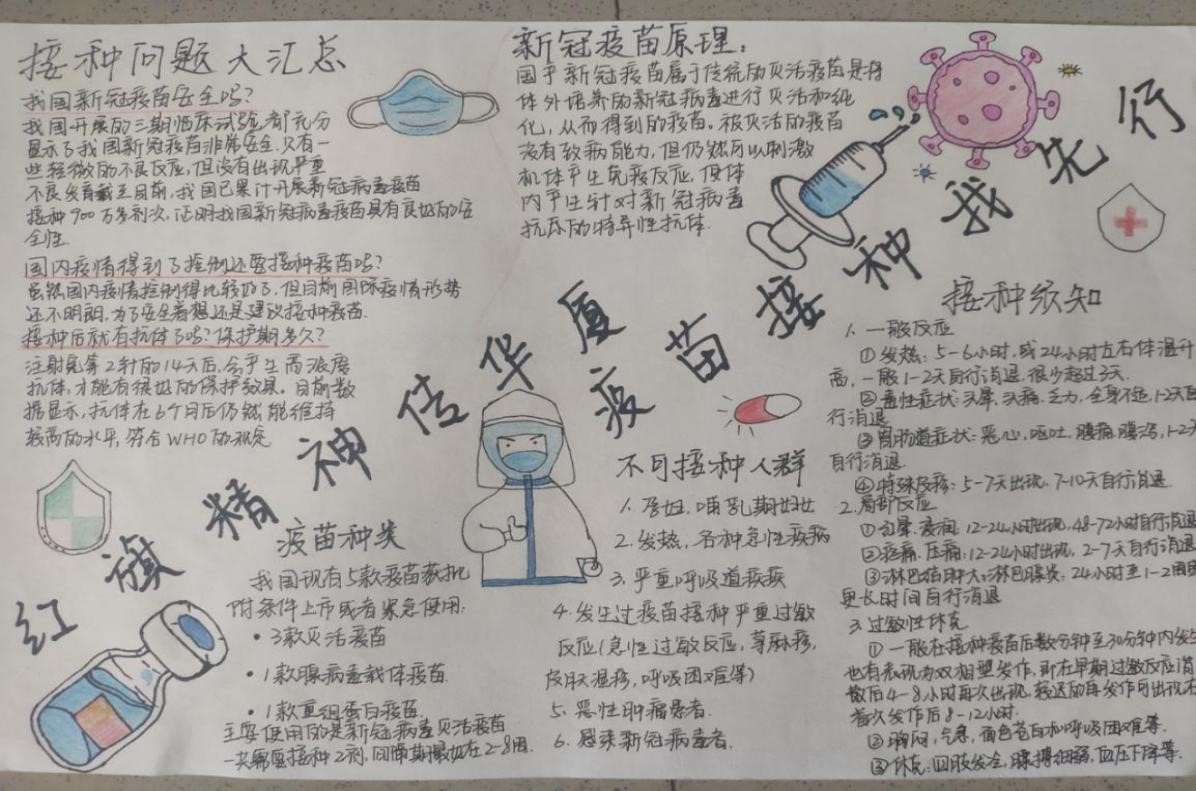 接种问题大汇总
我国新冠疫苗安全吗?
我国开展的三期临床试验,都充分
显示了我国新冠疫苗非常安全.只有一
些轻微的不良反应,但没有出现严重
不良发育截至目前,我国已累计开展新冠病毒疫苗
接种900万多剂次,证明我国新冠病毒疫苗具有良好的安
全性.
国内疫情得到了控制还要接种疫苗吗?
虽然国内疫情控制得比较好了,但目前国际疫情形势
还不明朗,为了安全着想还是建议接种疫苗.
接种后就有抗体了吗?保护期多久?
注射完第2针的14天后,会产生高浓度
抗体,才能有很好的保护效果。目前数
据显示,抗体在6个月后仍然能维持
较高的水平,符合WHO的规定
新冠疫苗原理:
国产新冠疫苗属于传统的灭活疫苗是将
体外培养的新冠病毒进行灭活和纯
化,从而得到的疫苗。被灭活的疫苗
没有致病能力,但仍然可以刺激
机体产生免疫反应,使体
内产生针对新冠病毒
抗原的特异性抗体.
红旗精神传华厦
疫苗接种我先行
疫苗种类
我国现有5款疫苗获批
附条件上市或者紧急使用:
·3款灭活疫苗
·1款腺病毒载体疫苗.
·1款重组蛋白疫苗.
主要使用的是新冠病毒灭活疫苗
一共需要接种2剂,间隔期最好在2-8周.
不可接种人群
1.孕妇,哺乳期妇女
2.发热,各种急性疾病
3.严重呼吸道疾病
4.发生过疫苗接种严重过敏
反应(急性过敏反应,荨麻疹,
皮肤湿疹,呼吸困难等)
5.恶性肿瘤患者.
6.感染新冠病毒者.
接种须知
1.一般反应
①发热:5-6小时,或24小时左右体温升
高,一般1-2天自行消退.很少超过3天.
②毒性症状:头晕,头痛,乏力,全身不适,1-2天自
行消退
③胃肠道症状:恶心,呕吐,腹痛,腹泻,1-2天
自行消退.
④特殊皮疹:5-7天出现,7-10天自行消退.
2.局部反应
①红晕,浸润:12-24小时出现,48-72小时自行消退
②疼痛,压痛:12-24小时出现,2-7天自行消退
③淋巴结肿大:淋巴腺炎:24小时至1-2周或
更长时间自行消退
3.过敏性休克
①一般在接种疫苗后数分钟至30分钟内发生
也有表现为双相型发作,即在早期过敏反应消
散后4-8小时再次出现,较迟的再发作可出现在
首次发作后8-12小时.
②胸闷,气急,面色苍白和呼吸困难等.
③休克:四肢发冷,脉搏细弱,血压下降等.